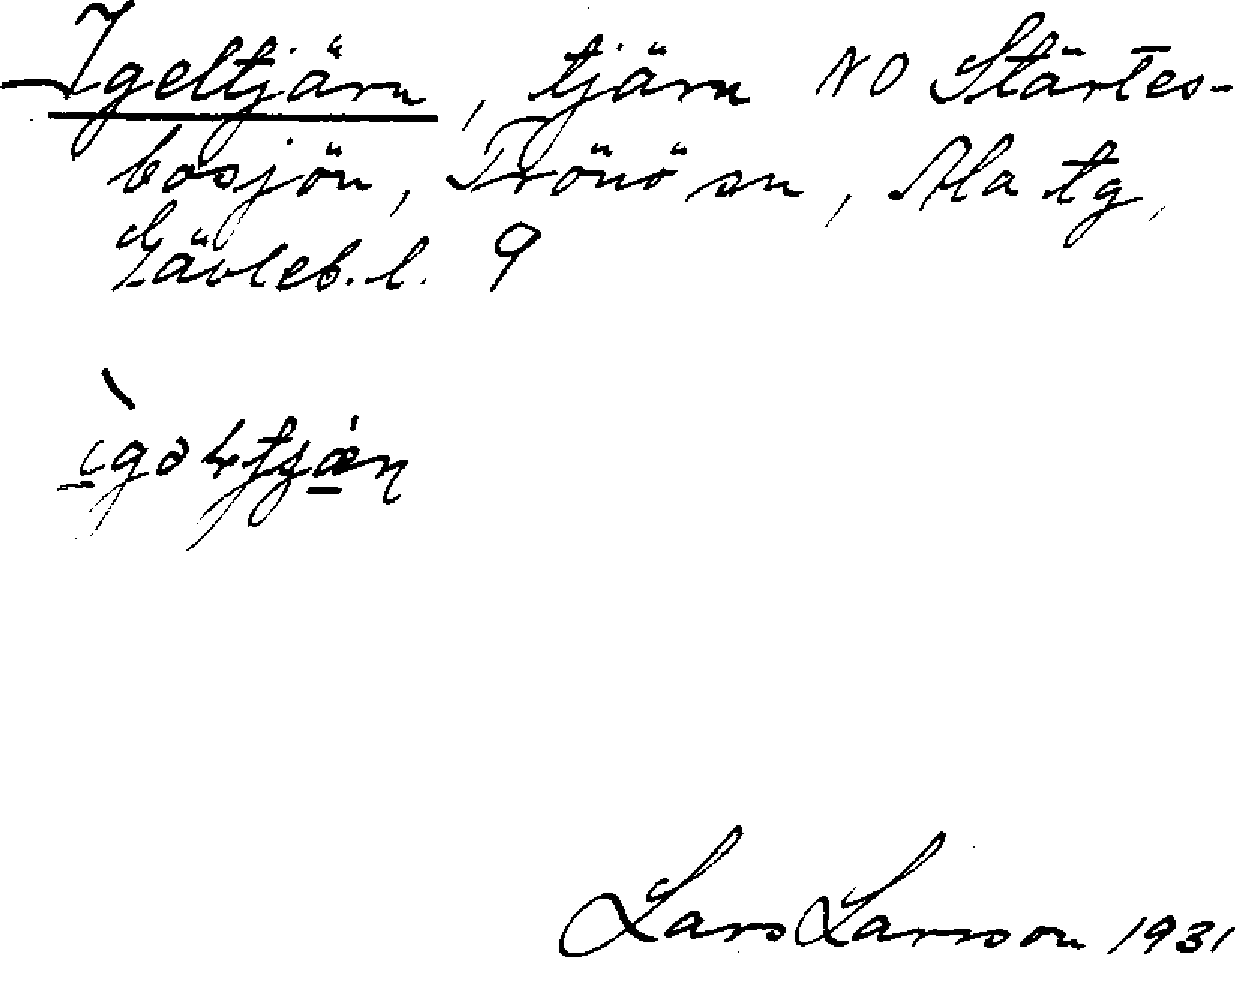 Igeltjärn, tjärn NO Stärtes-
bosjön, Trönö sn, Ala tg,
Gävleb. l. 9
Lars Larsson 1931